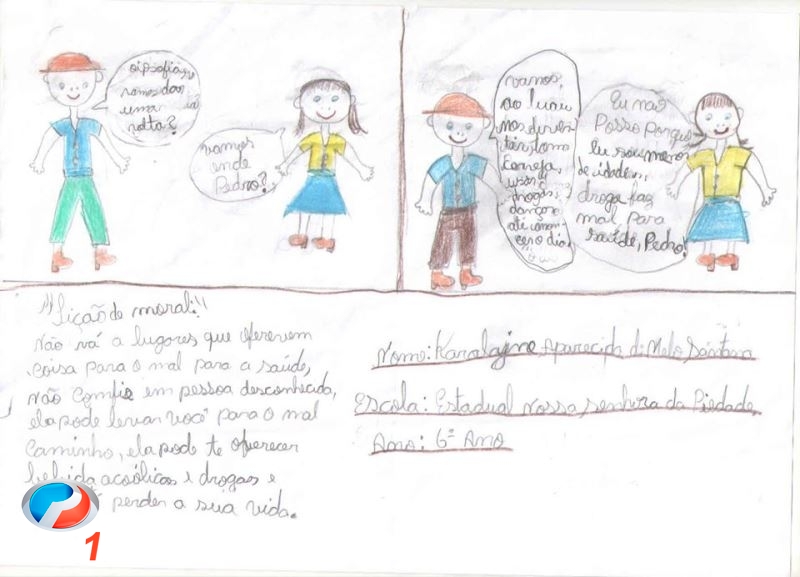 oi sofia,
vamos dar
uma
volta?
vamos
onde
Pedro?
vamos,
ao lugar
nos divertir
tomar
cerveja,
usar
drogas,
dançar
até
o dia
Eu não
Posso porque
eu sou menor
de idade e,
droga faz
mal para
saúde, Pedro!
Lição de moral:
Não vá a lugares que oferecem
coisa para o mal para a saúde,
não comfie em pessoa desconhecida,
ela pode levar você para o mal
caminho, ela pode te oferecer
bebida acoólicas e drogas e
perder a sua vida.
Nome: Karolayne Aparecida de Melo Santana
Escola: Estadual nossa senhora da Piedade
Ano: 6º Ano
1